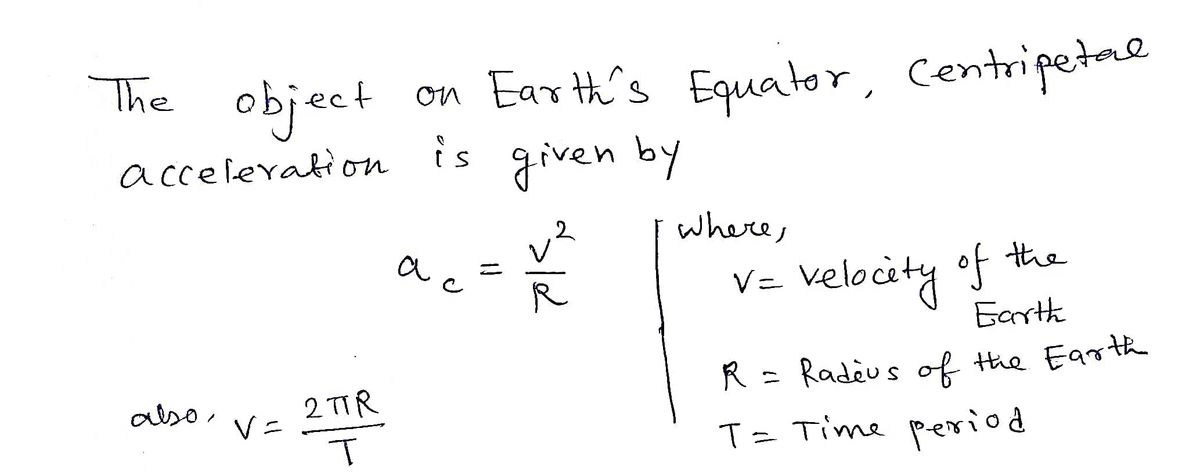 The object on Earth's Equator, Centripetal
acceleration is given by
a_c = v²/R
where,
V = Velocity of the
Earth
R = Radius of the Earth
T = Time period
also, V = 2πR/T